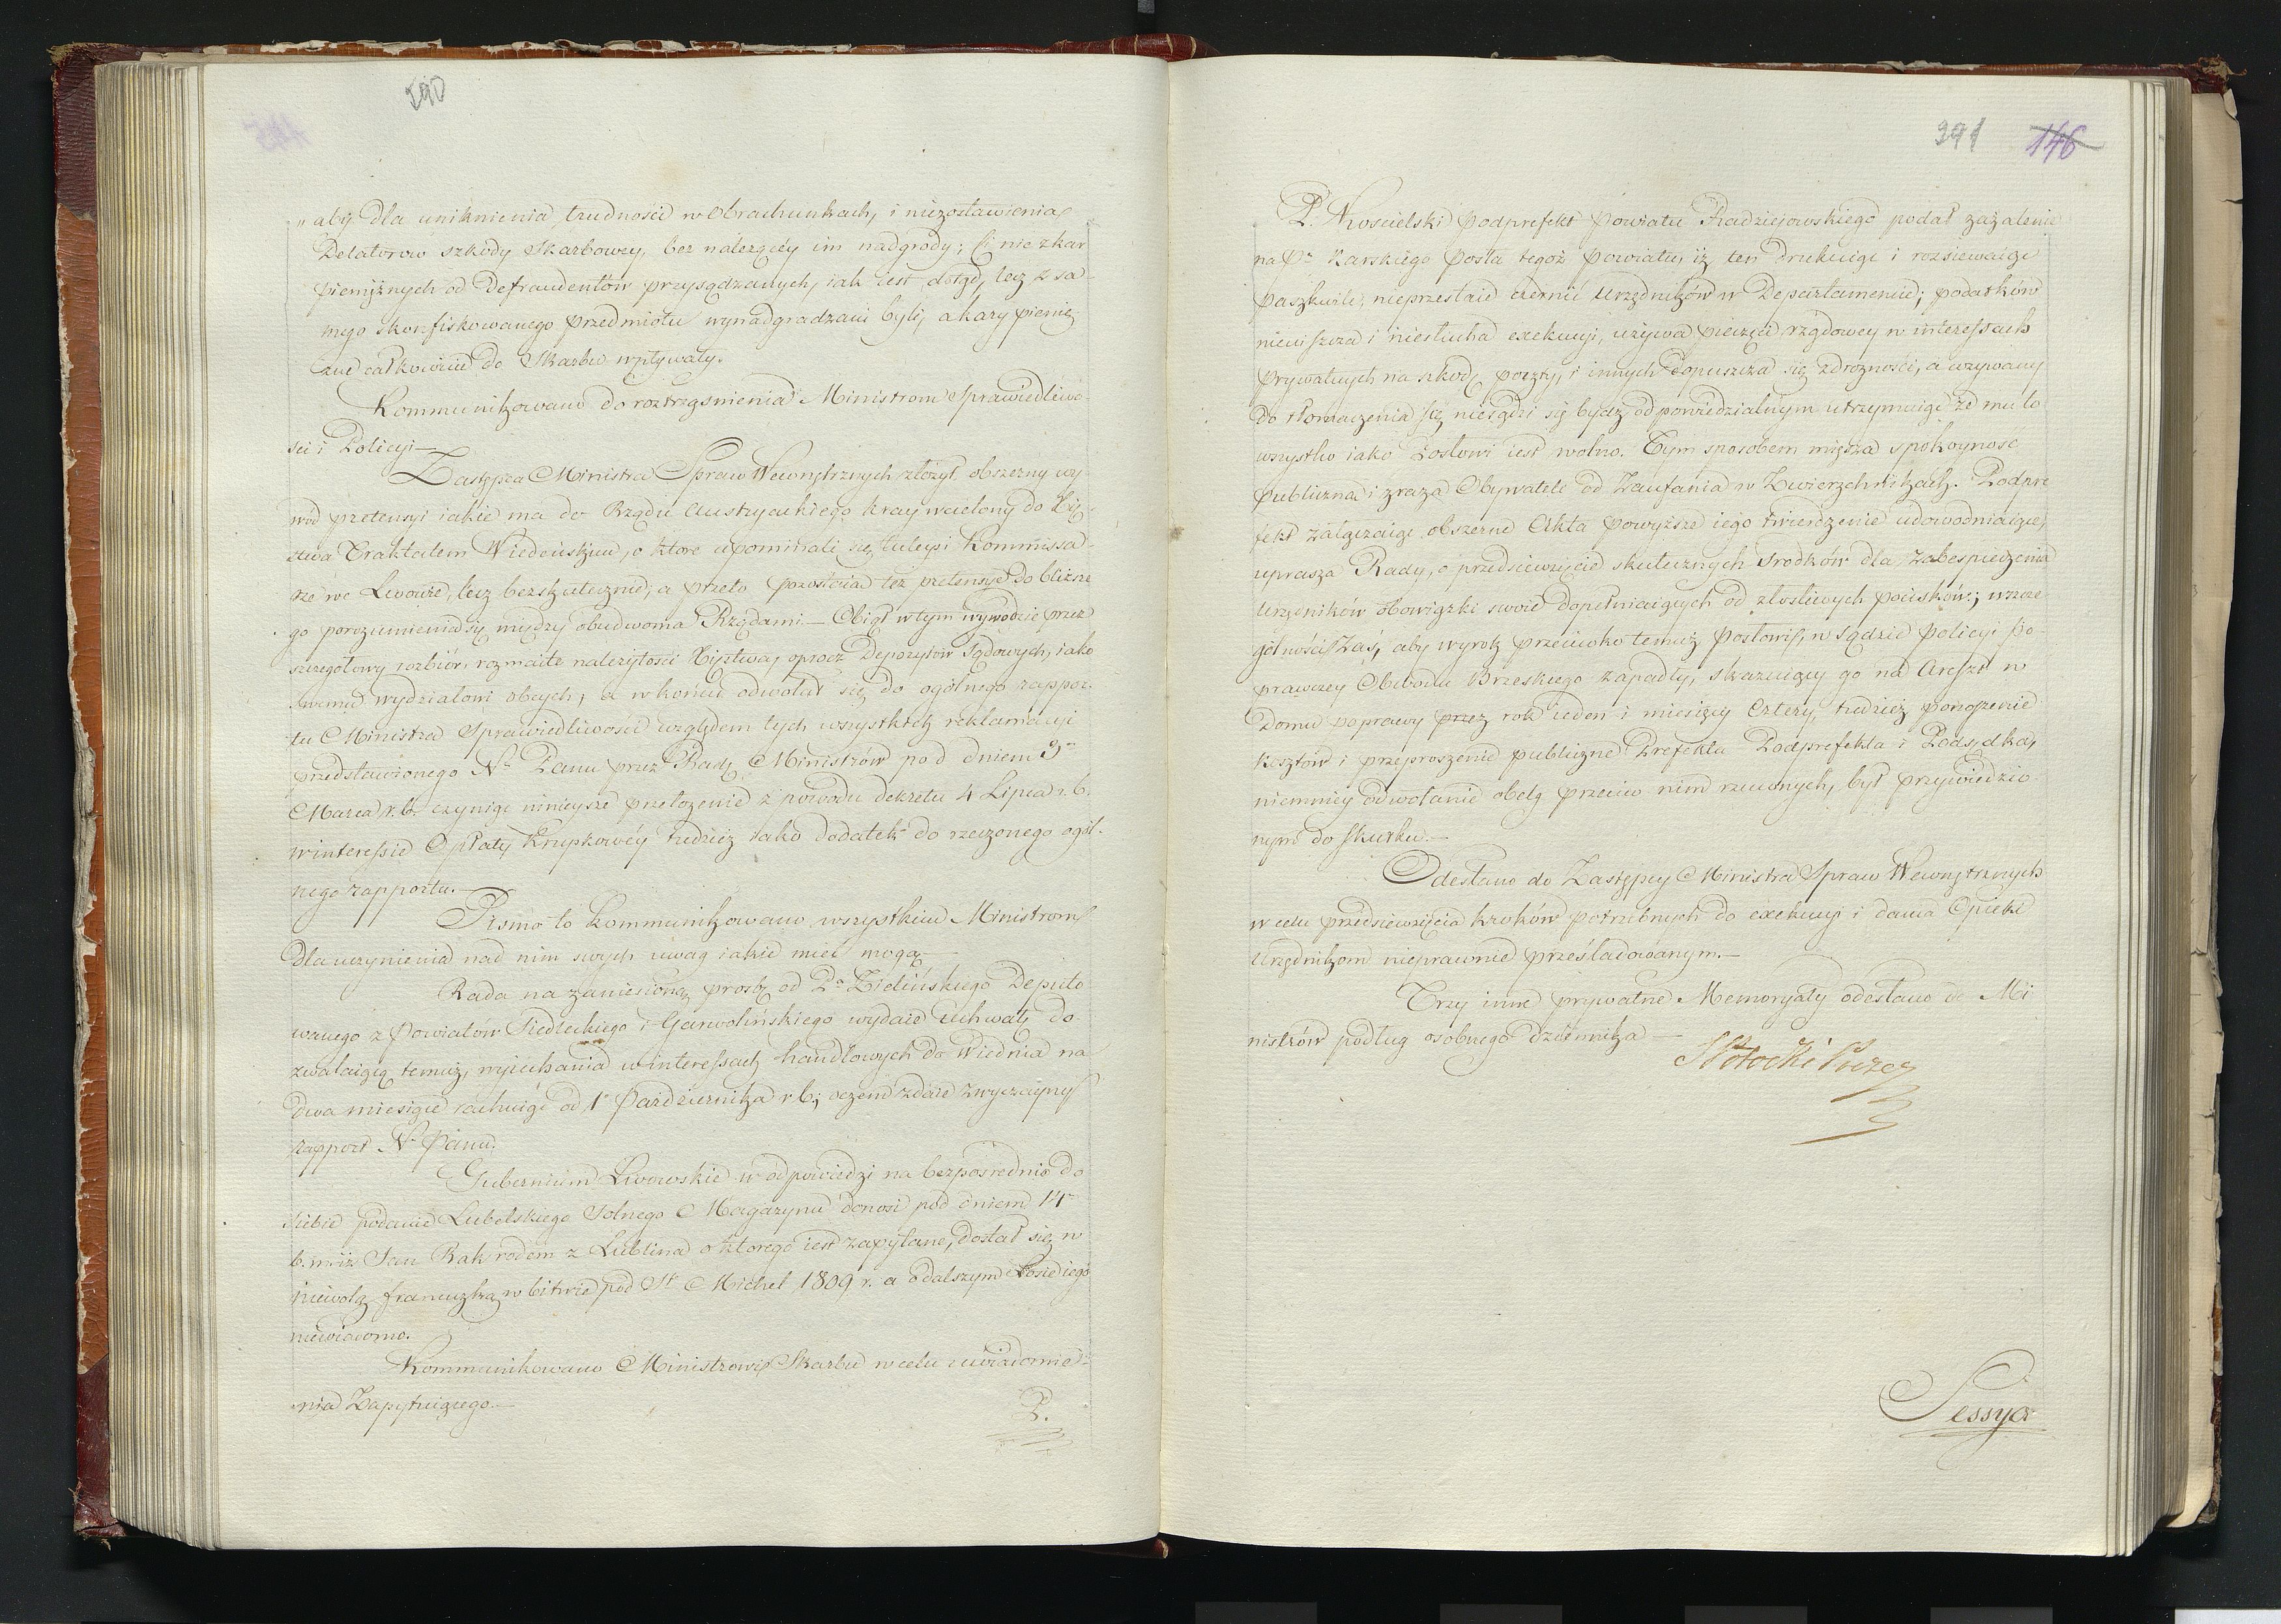 290
„aby dla uniknienia trudności w Obrachunkach, i niezostawienia
Delatorow szkody Skarbowey, bez należącéy im nadgrody; Ci nie z kar
pieniężnych od Defraudentów przysądzanych, iak iest dotąd, lecz z sa-
mego skonfiskowanego przedmiotu wynadgradzani byli, a kary pienię-
żne całkowicie do Skarbu wpływały.
Kommunikowano do roztrząsnienia Ministrom Sprawiedliwo-
ści i Policyi—
Zastępca Ministra Spraw Wewnętrznych złożył obszerny wy-
wod pretensyi iakie ma do Rządu Austryackiego kray wcielony do Xię-
stwa Traktatem Wiedeńskim, o ktore upominali się tuteysi Kommissa-
rze we Lwowie, lecz bezskutecznie, a przeto pozostaią też pretensye do bliższe
go porozumienia się między obudwoma Rządami.— Obiął w tym wywodzie przez
szczegołowy rozbiór, rozmaite należytości Xięstwa, oprocz Depozytow Sądowych, iako
swemu wydziałowi obcych, a w końcu odwołał się do ogólnego rappor-
tu Ministra Sprawiedliwości względem tych wszystkich reklamacyi
przedstawionego N. Panu przez Radę Ministrów pod dniem 3°
Marca r. b. czyniąc ninieysze przełożenie z powodu dekretu 4 Lipca r. b.
w interessie Opłaty Krupkowéy tudzież iako dodatek do rzeczonego ogól-
nego rapportu.—
Pismo to kommunikowano wszystkim Ministrom
dla uczynienia nad nim swych uwag iakie mieć mogą—
Rada na zaniesioną prosbę od Pa Zielińskiego Deputo
wanego z Powiatów Siedleckiego i Garwolińskiego wydaie uchwałę do-
zwalaiącą temuż, wyiechania w interessach handlowych do Wiednia na
dwa miesiące rachuiąc od 1° Października r. b.; o czem zdaie zwyczayny
rapport N. Panu.
Gubernium Lwowskie w odpowiedzi na bezpośrednio do
siebie podanie Lubelskiego Solnego Magazynu donosi pod dniem 14°
b. m. iż Jan Rak rodem z Lublina o ktorego iest zapytane, dostał się w
niewolę francuzką w bitwie pod St Michel 1809 r. a o dalszym Losie iego
niewiadomo.
Kommunikowano Ministrowi Skarbu w celu zawiadomie-
nia Zapytuiącego.—
P.
291 146
P. Kościelski Podprefekt Powiatu Radziejowskiego podał zażalenie
na Pa Karskiego Posła tegoż Powiatu, iż ten drukuiąc i rozsiewaiąc
Paszkwile, nieprzestaie czernić Urzędników w Departamencie; podatków
nieuiszcza i niesłucha exekucyi, używa pieczęci rządowey w interessach
prywatnych na szkodę poczty, i innych dopuszcza się zdrożności, a wzywany
do tłomaczenia się niesądzi się bydź odpowiedzialnym utrzymuiąc że mu to
wszystko iako Posłowi iest wolno. Tym sposobem miesza spokoyność
publiczną i zraża Obywateli od Zaufania w Zwierzchnikach. Podpre
fekt załączaiąc obszerne Akta powyższe iego twierdzenie udowodniaiące,
uprasza Rady, o przedsięwzięcie skutecznych srodków dla Zabespieczenia
Urzędników obowiązki swoie dopełniaiących od złosliwych pocisków; w szcze
gólności Zaś, aby wyrok przeciwko temuż Posłowi, w Sądzie Policyi Po-
prawczey Obwodu Brzeskiego zapadły, skazuiący go na Areszt w
Domu poprawy przez rok ieden i miesięcy Cztery, tudzież ponoszenie
kosztów i przeproszenie publiczne Prefekta Podprefekta i Podsędka,
niemniéy odwołanie obelg przeciw nim rzuconych, był przywiedzio-
nym do skutku.—
Odesłano do Zastępcy Ministra Spraw Wewnętrznych
w celu przedsięwzięcia kroków potrzebnych do exekucyi i dania Opieki
Urzędnikom nieprawnie prześladowanym.—
Trzy inne prywatne Memoryały odesłano do Mi
nistrów podług osobnego dziennika—
St Potocki Prezes
Sessya